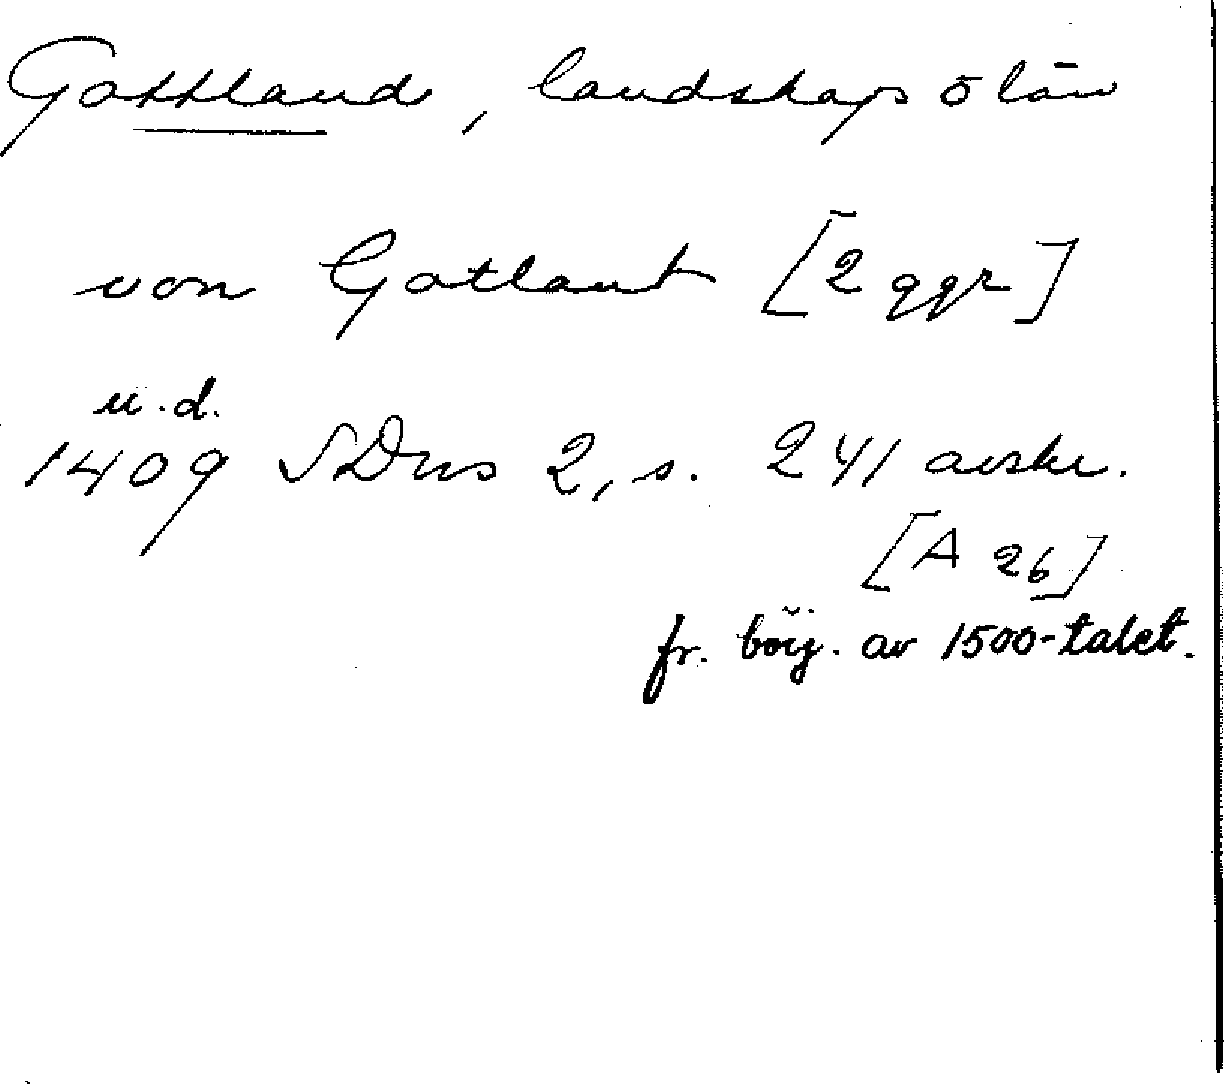 Gottland, landskap o län
von Gotlant [2 ggr]
u.d.
1409 SDns 2, s. 241 avskr.
[A 26]
fr. börj. av 1500-talet.